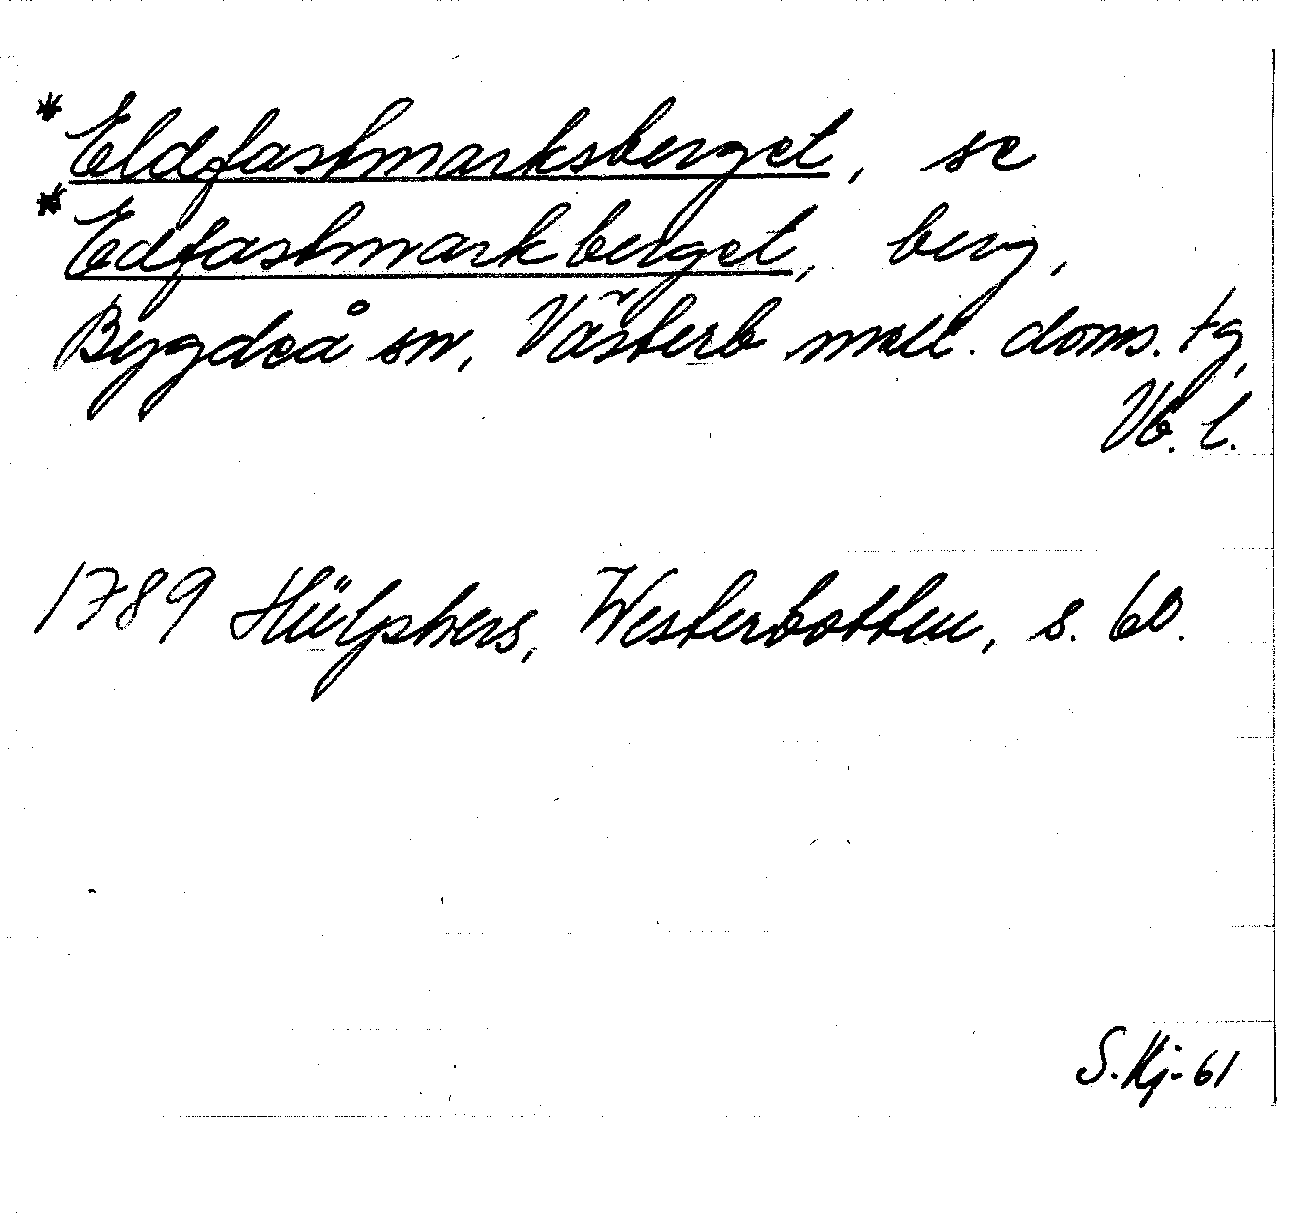 *Eldfastmarksberget, se
*Edfastmarkberget, berg,
Bygdeå sn, Västerb mell. doms. tg,
Vb. l.
1789 Hülphers, Westerbotten, s. 60.
S. Kj-61